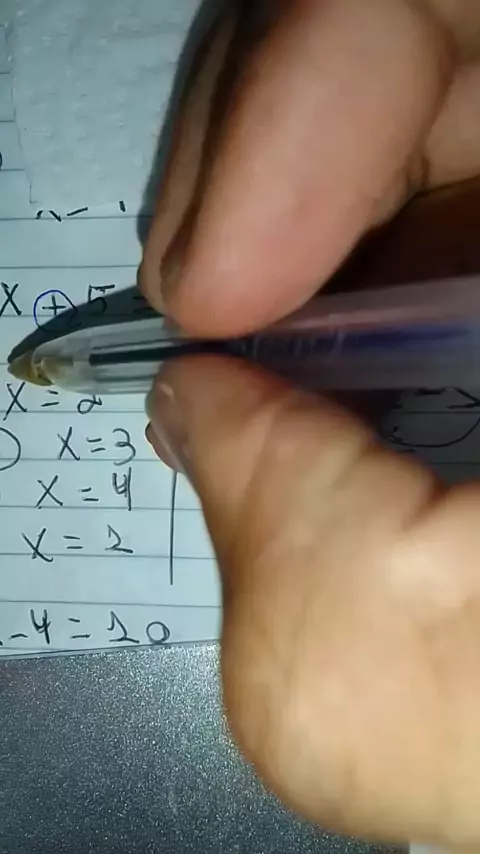 x + 5
x = 2
x = 3
x = 4
x = 2
-4 = 20